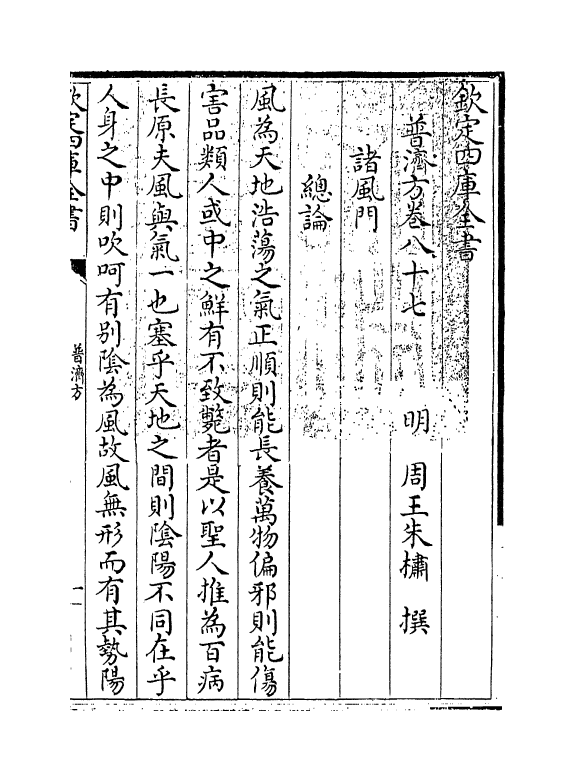 欽定四庫全書
普濟方卷八十七
明 周王朱橚 撰
諸風門
總論
風為天地浩蕩之氣正順則能長養萬物偏邪則能傷
害品類人或中之鮮有不致斃者是以聖人推為百病
長原夫風與氣一也塞乎天地之間則陰陽不同在乎
人身之中則吹呵有别陰為風故風無形而有其勢陽
欽定四庫全書
普濟方
一